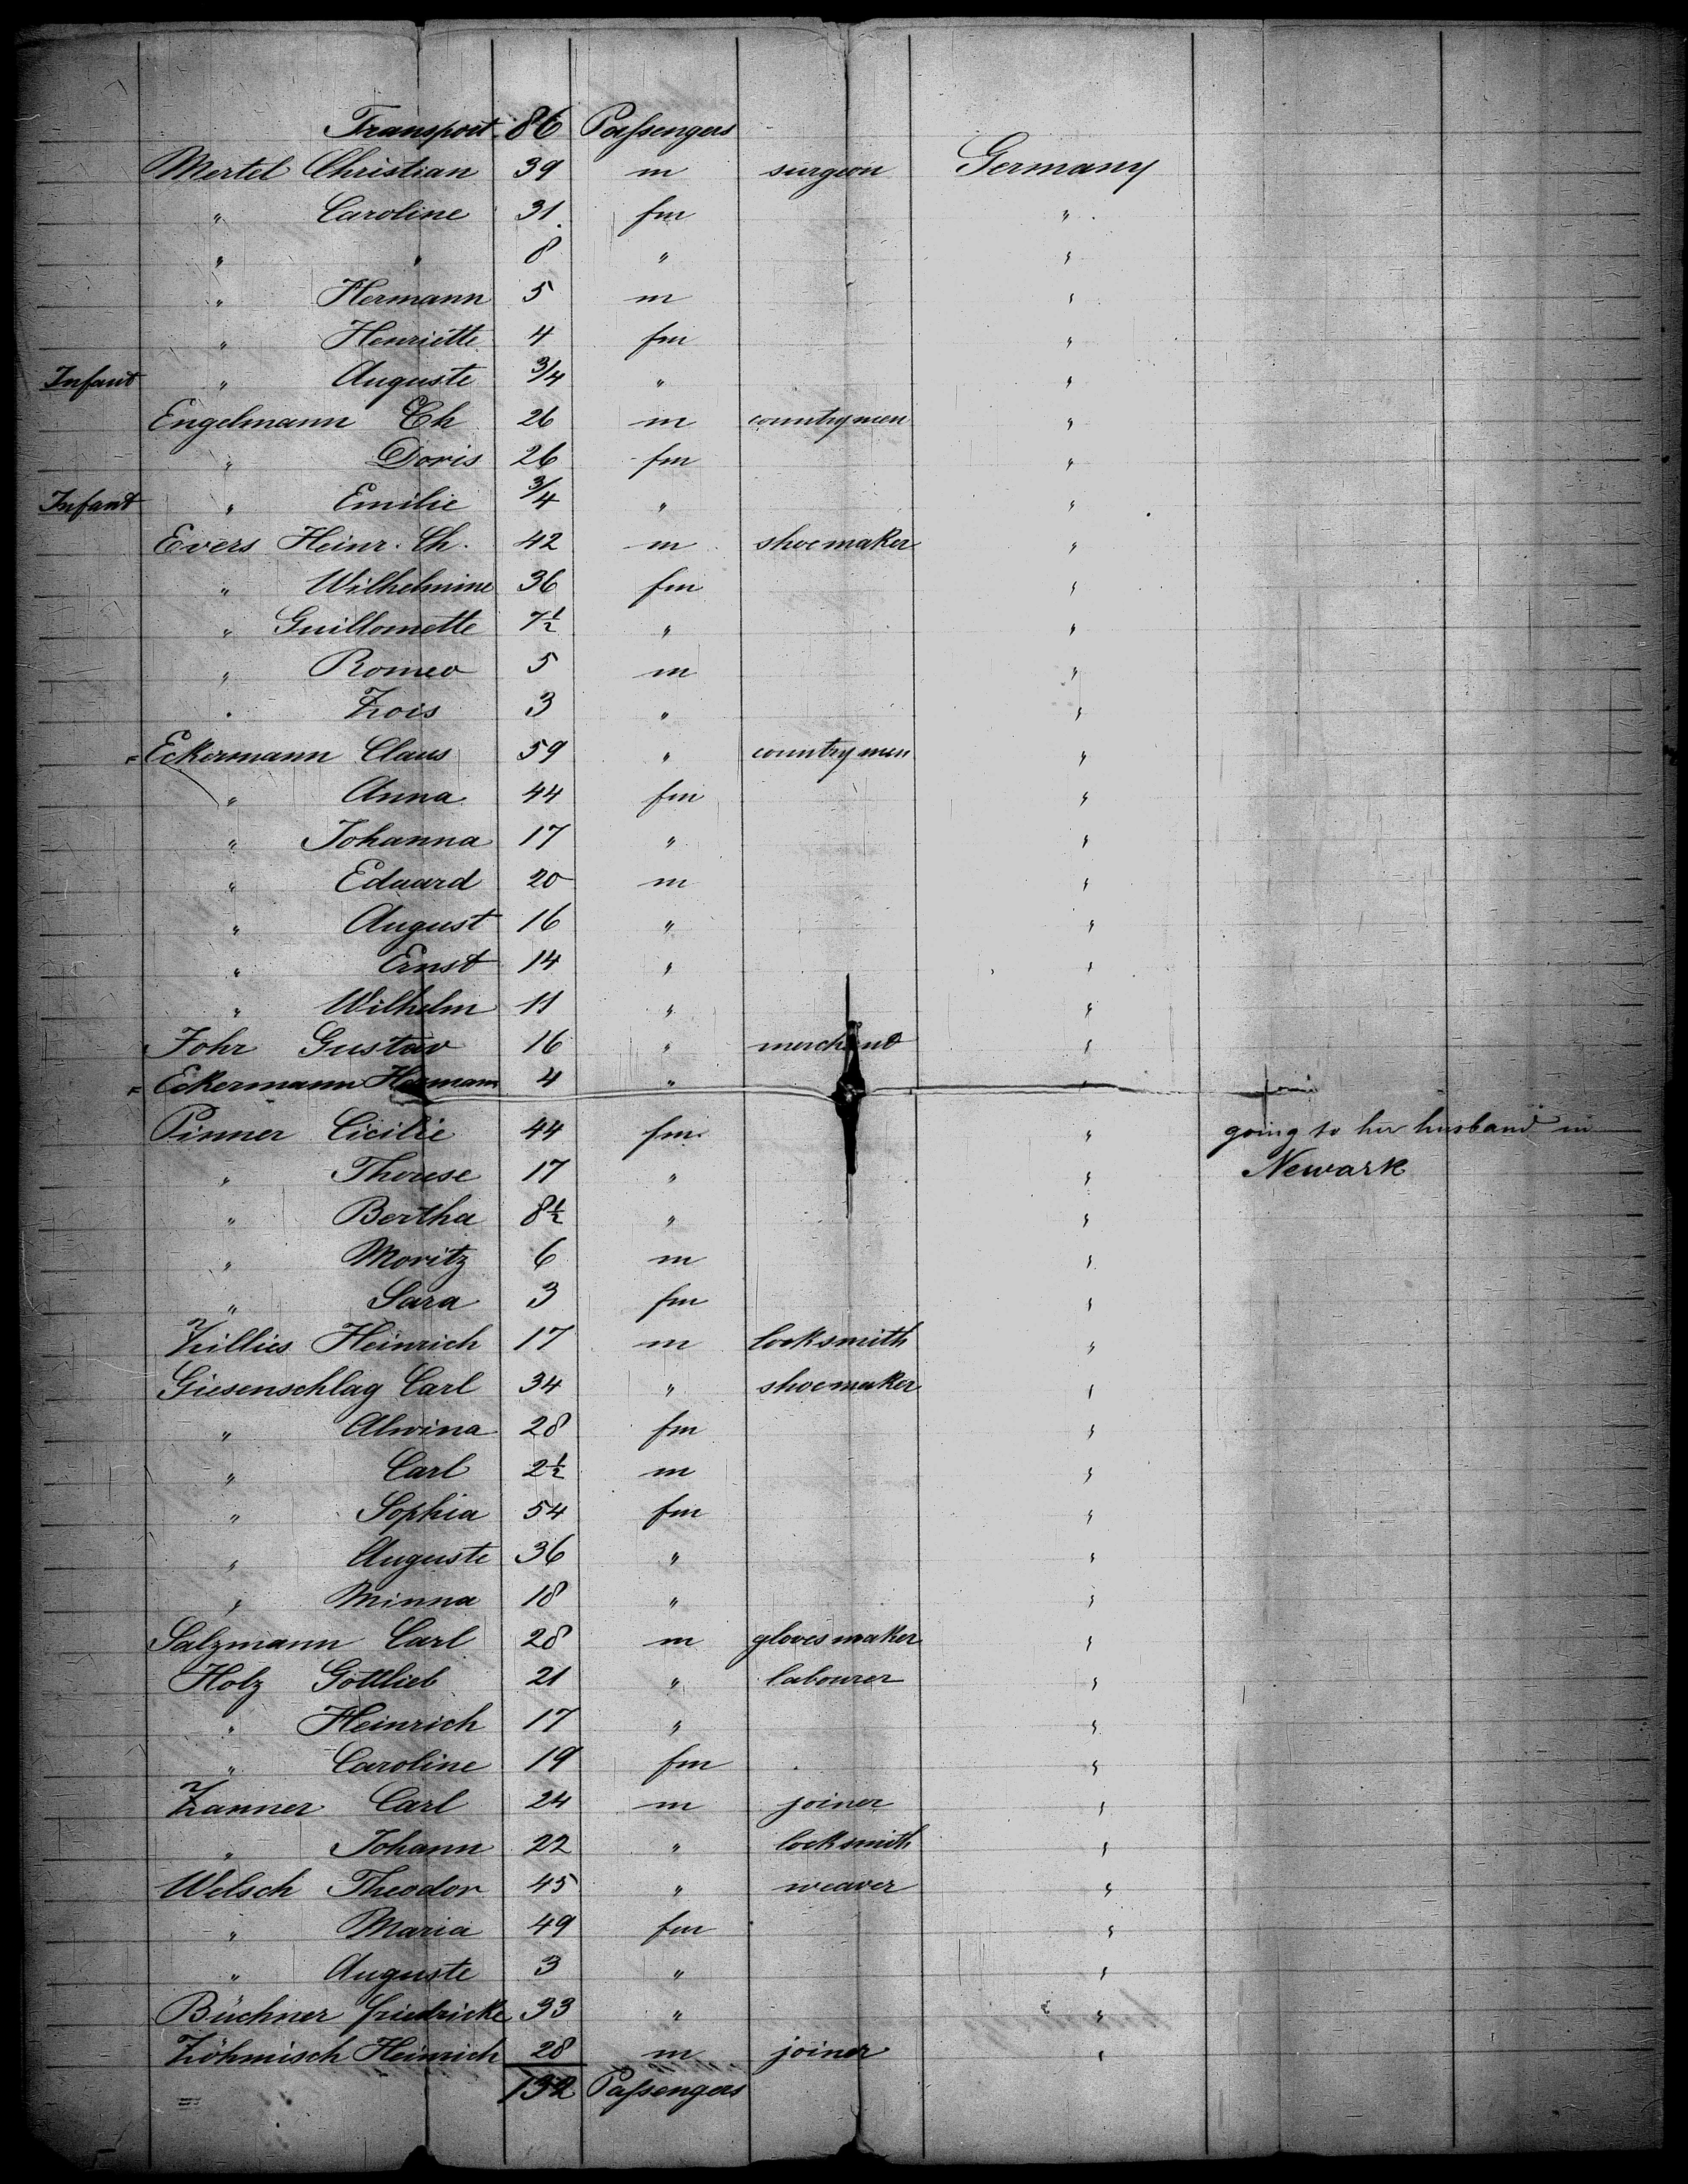 Transport 86 Passengers
Mertel Christian 39 m surgeon Germany
" Caroline 31 fm "
" " 8 " "
" Hermann 5 m "
" Henriette 4 fm "
Infant " Auguste 3/4 " "
Engelmann Ch 26 m countrymen "
" Doris 26 fm "
Infant " Emilie 3/4 " "
Evers Heinr. Ch. 42 m shoemaker "
" Wilhelmine 36 fm "
" Guillomette 7½ " "
" Romeo 5 m "
" Zois 3 " "
= Eckermann Claus 59 " countrymen "
" Anna 44 fm "
" Johanna 17 " "
" Eduard 20 m "
" August 16 " "
" Ernst 14 " "
" Wilhelm 11 " "
Johr Gustav 16 " merchand "
= Eckermann Hermann 4 " "
Pinner Cicilie 44 fm " going to her husband in
" Therese 17 " " Newark
" Bertha 8½ " "
" Moritz 6 m "
" Sara 3 fm "
Zillies Heinrich 17 m locksmith "
Giesenschlag Carl 34 " shoemaker "
" Alwina 28 fm "
" Carl 2½ m "
" Sophia 54 fm "
" Auguste 36 " "
" Minna 18 " "
Salzmann Carl 28 m glovesmaker "
Holz Gottlieb 21 " labourer "
" Heinrich 17 " "
" Caroline 19 fm "
Zanner Carl 24 m joiner "
" Johann 22 " locksmith "
Welsch Theodor 45 " weaver "
" Maria 49 fm "
" Auguste 3 " "
Büchner Friedricke 33 " "
Zöhmisch Heinrich 28 m joiner "
132 Passengers